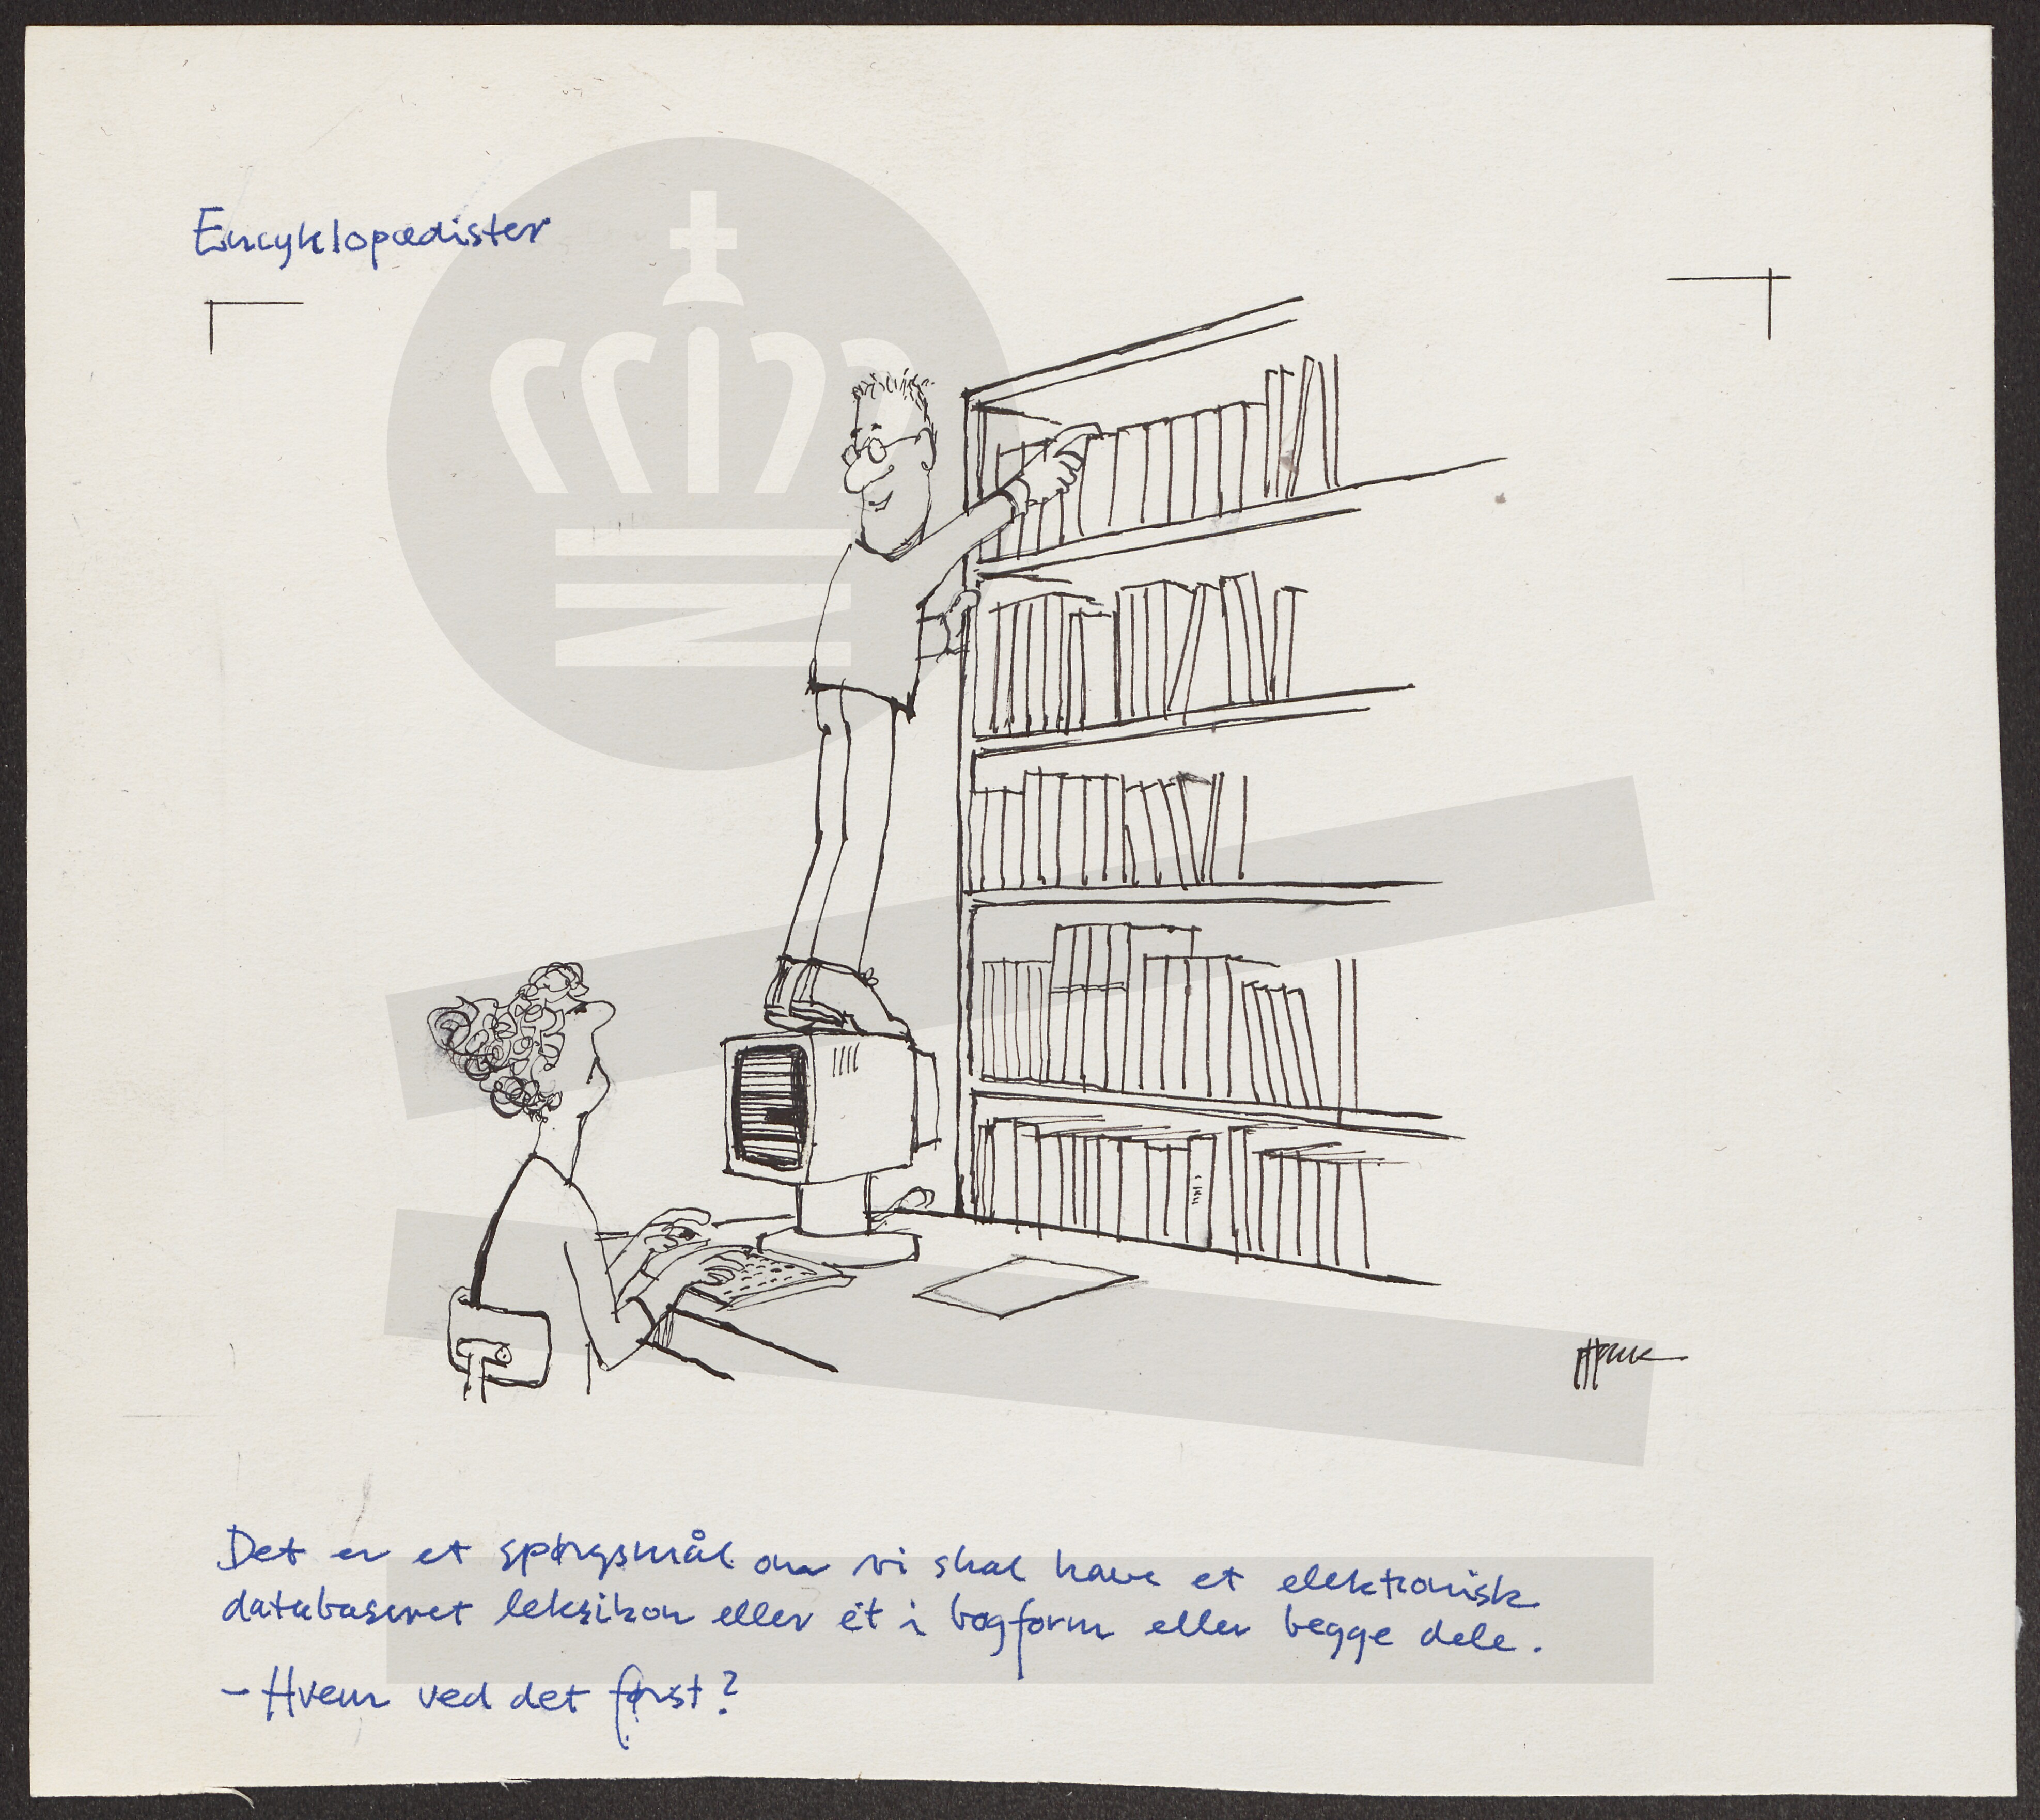 Encyklopædister
Det er et spørgsmål om vi skal have et elektronisk
databaseret leksikon eller ét i bogform eller begge dele.
- Hvem ved det først?